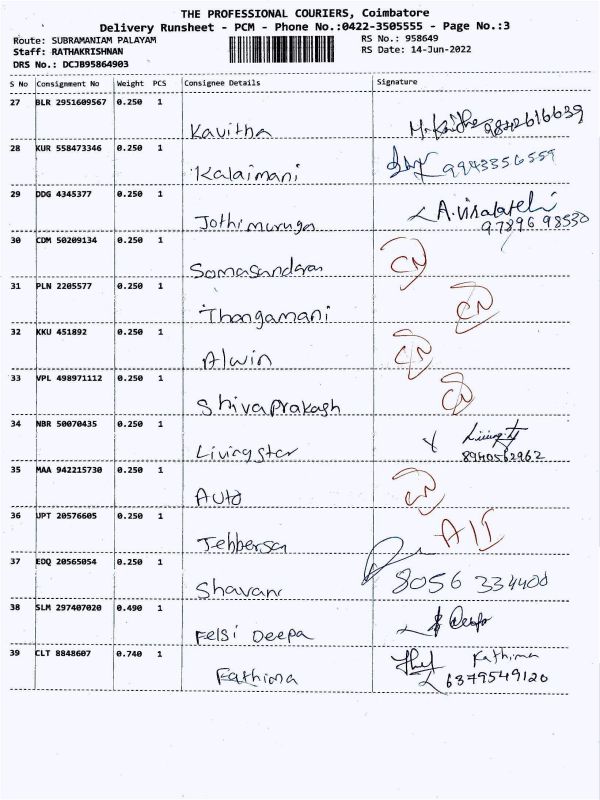 THE PROFESSIONAL COURIERS, Coimbatore
Delivery Runsheet - PCM - Phone No.:0422-3505555 - Page No.:3
Route: SUBRAMANIAM PALAYAM RS No.: 958649
Staff: RATHAKRISHNAN RS Date: 14-Jun-2022
DRS No.: DCJB95864903
S No Consignment No Weight PCS Consignee Details Signature
27 BLR 2951609567 0.250 1
Kavitha 9842616639
28 KUR 558473346 0.250 1
Kalaimani 9943356559
29 DDG 4345377 0.250 1
Jothimuruga A.Visalatchi
97896 98530
30 CDM 50209134 0.250 1
Somasandaran CN
31 PLN 2205577 0.250 1
Thangamani CN
32 KKU 451892 0.250 1
Alwin CN
33 VPL 498971112 0.250 1
Shivaprakash CN
34 NBR 50070435 0.250 1
Livingstar 8940562962
35 MAA 942215730 0.250 1
Auto CN
36 UPT 20576605 0.250 1
Jebberson
37 EDQ 20565054 0.250 1
Shavani 8056 334400
38 SLM 297407020 0.490 1
Felsi Deepa Deepa
39 CLT 8848607 0.740 1 Kathima
Fathima 6379549120